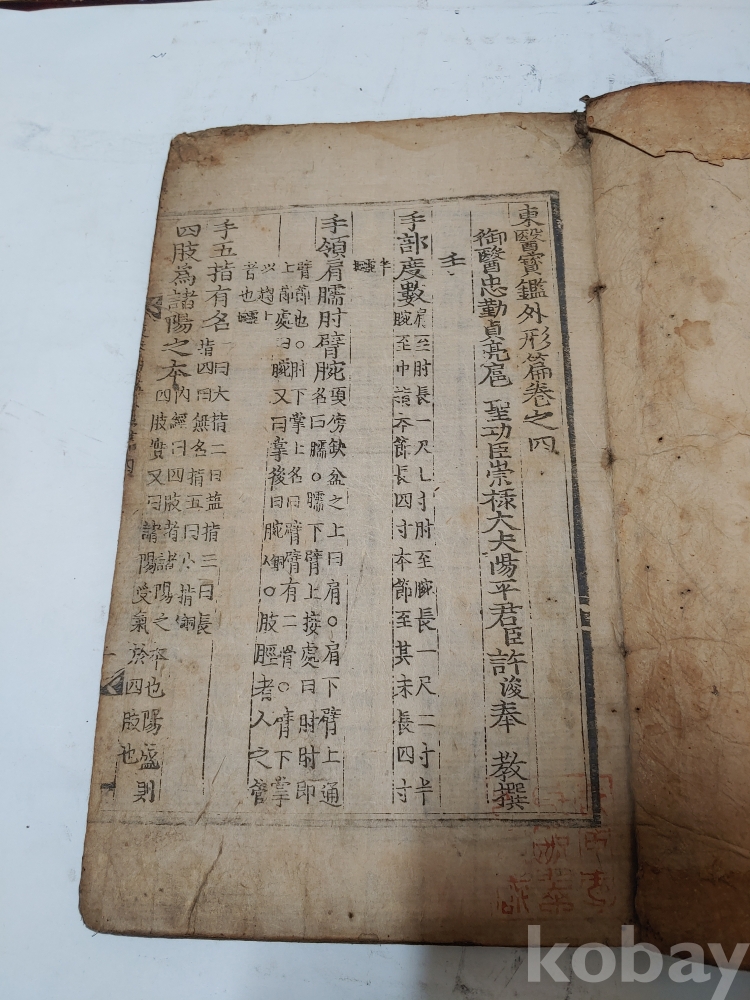 東醫寶鑑外形篇卷之四
御醫忠勤貞亮扈 聖功臣崇祿大夫陽平君臣許浚奉 敎撰
手
手部度數
肩至肘長一尺七寸肘至腕長一尺二寸半
腕至中指本節長四寸本節至其末長四寸
半 靈樞
手領肩臑肘臂腕
項傍缺盆之上曰肩○肩下臂上通
名曰臑○臑下臂上接處曰肘肘卽
臂節也○肘下掌上名曰臂臂有二骨○臂下掌
上節處曰腕又曰掌後曰腕 銅人○肢脛者人之管
以趨
者也 靈樞
手五指有名
一曰大指二曰鹽指三曰長
指四曰無名指五曰小指 銅
四肢爲諸陽之本
內經曰四肢者諸陽之本也陽盛則
四肢實又曰諸陽受氣於四肢也
kobay